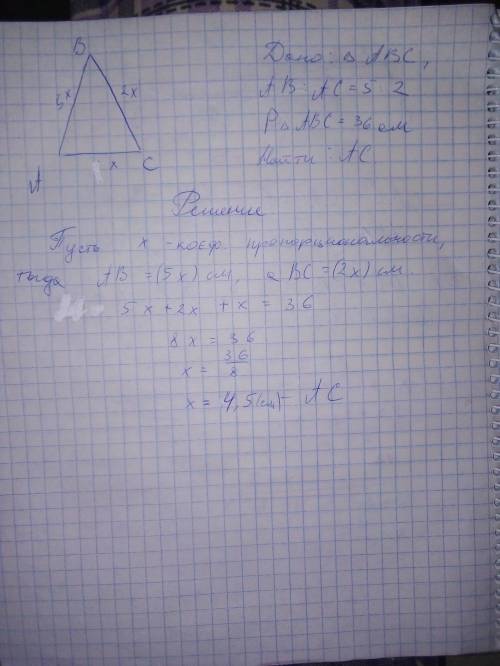 B
5x
2x
x
A
C
Дано: △ ABC,
AB : AC = 5 : 2
P△ ABC = 36 см
Найти: AC
Решение
Пусть x - коэф. пропорциональности,
тогда AB = (5x) см, а BC = (2x) см.
5x + 2x + x = 36
8x = 36
x = 36/8
x = 4,5(см) - AC